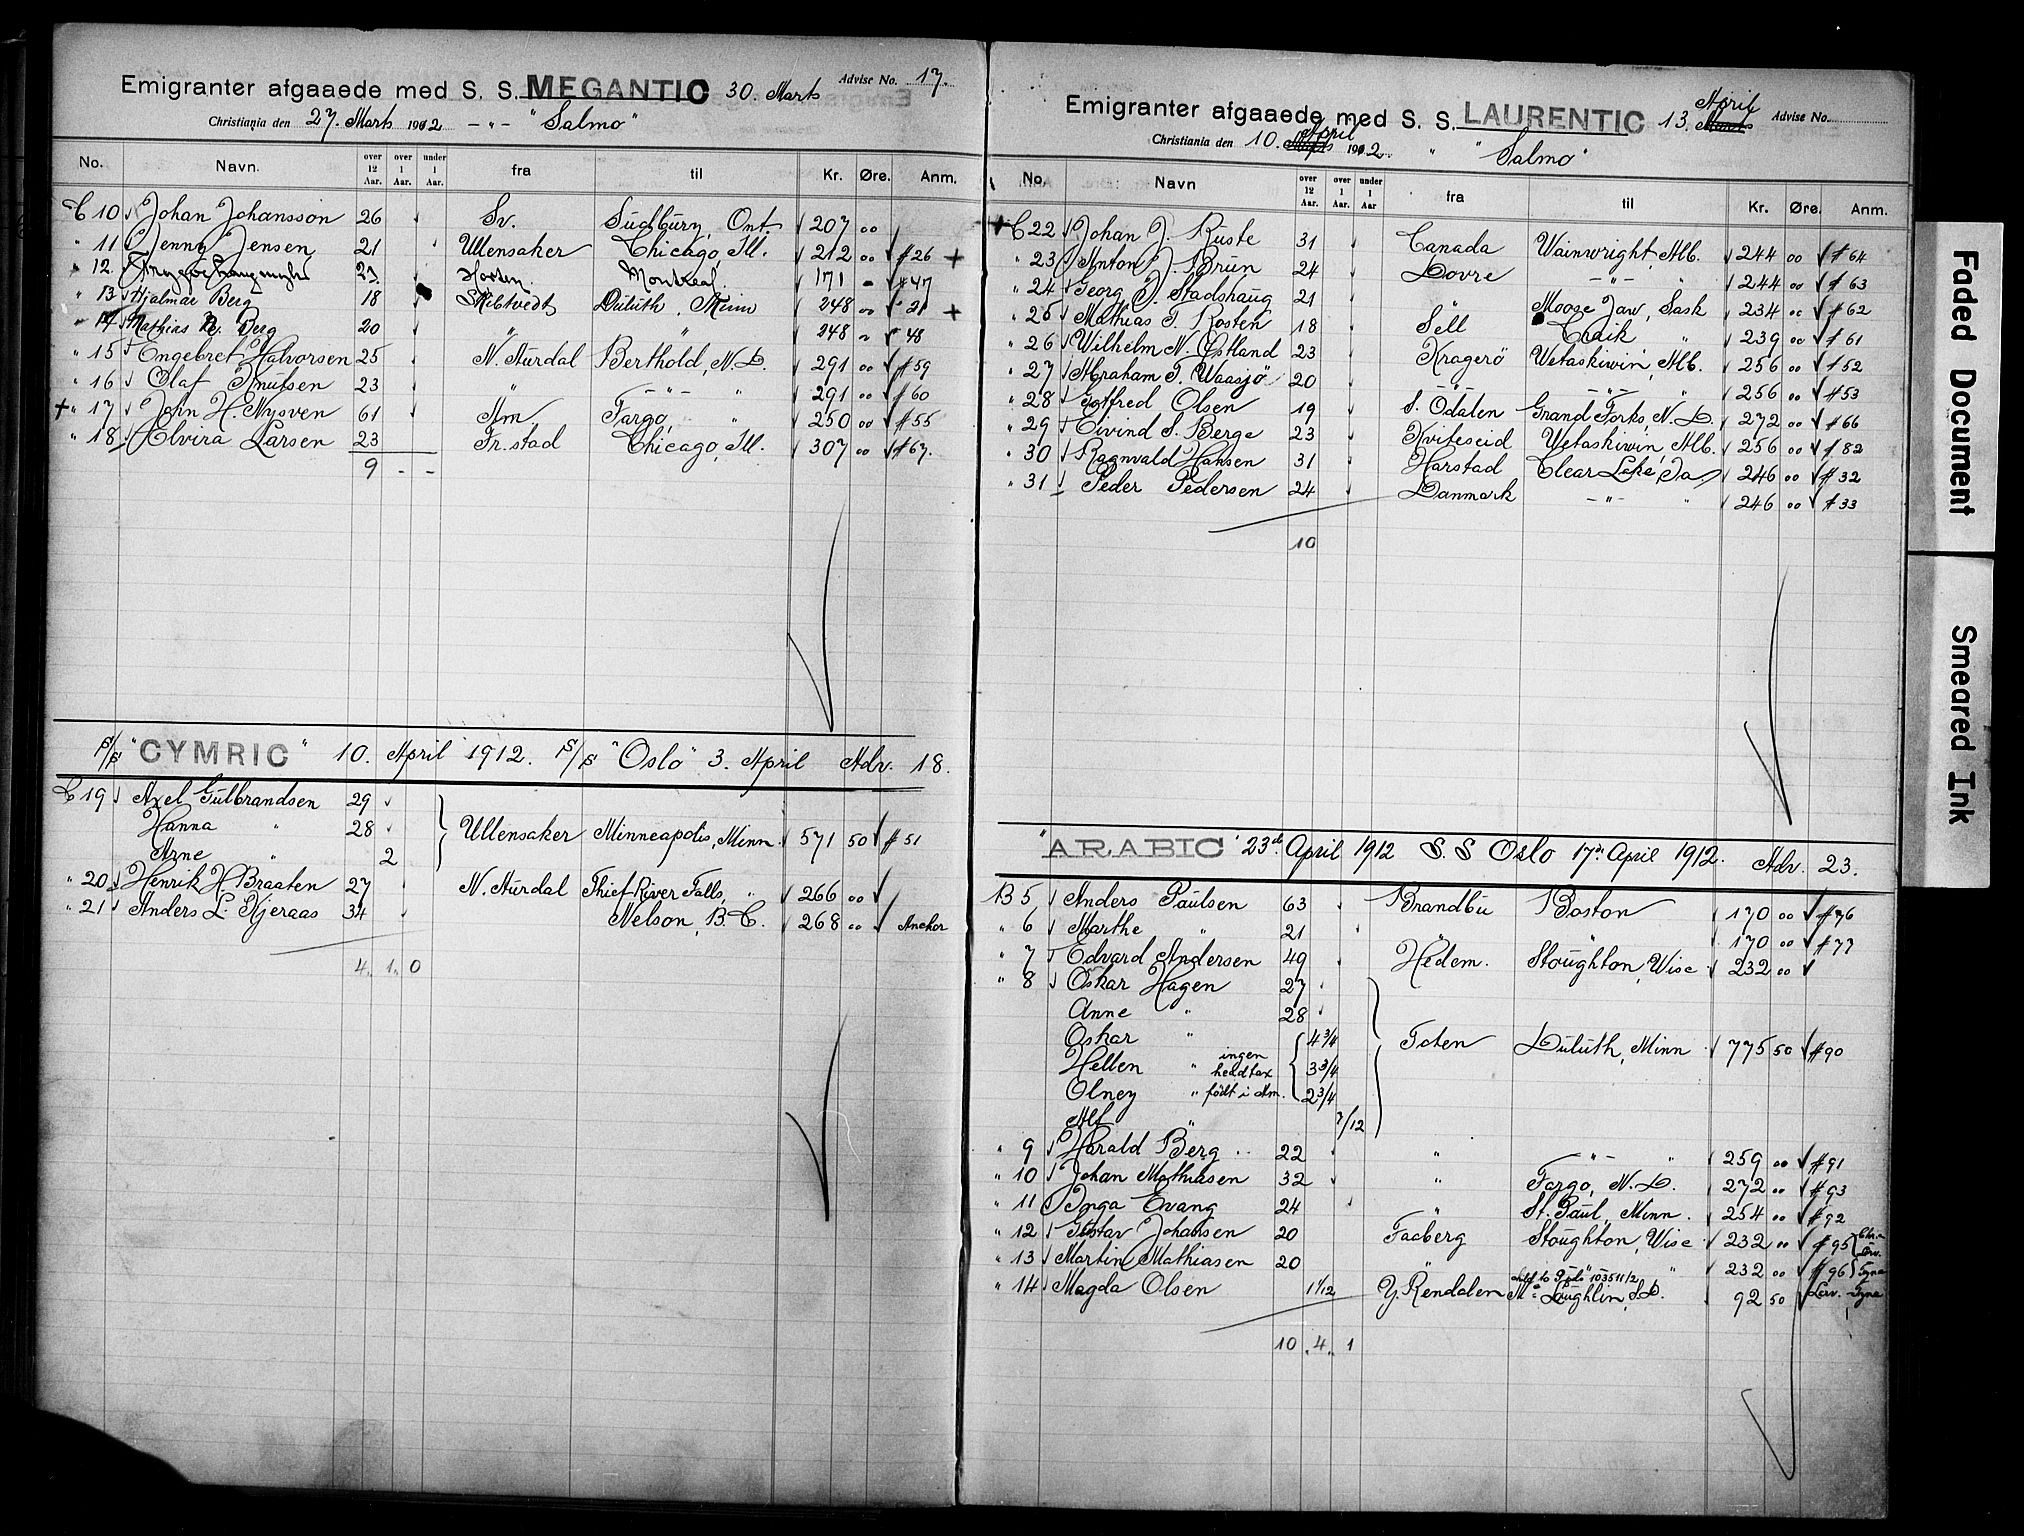 Emigranter afgaaede med S. S. MEGANTIC 30. Marts Advise No. 17.
Christiania den 27. Marts 1912 -"- "Salmo"
No. Navn. over 12 Aar. over 1 Aar. under 1 Aar. fra til Kr. Øre. Anm.
C 10 Johan Johansson 26 Sv. Sudbury, Ont. 207 00
" 11 Jenny Jensen 21 Ullensaker Chicago, Ill. 212 00 #26 +
" 12. 23. Horten Montreal. 171 - #47
" 13 Hjalmar Berg 18 Skibtvedt Duluth, Minn 248 00 " 21 +
" 14 Mathias N. Berg 20 " " 248 " # 48
" 15 Engebret Halvorsen 25 N. Aurdal Berthold, N.D. 291 00 #59
" 16 Olaf Knutsen 23 " -"- " 291 00 #60
+ " 17 John H. Nysven 61 Am Fargo, " 250 00 #55
" 18 Elvira Larsen 23 Fr.stad Chicago, Ill. 307 00 #67.
9 - -
S/S "CYMRIC" 10. April 1912. S/S "Oslo" 3. April Adv. 18.
C 19 Axel Gulbrandsen 29
Hanna " 28 Ullensaker Minneapolis, Minn 571 50 #51
Arne " 2
" 20 Henrik H. Braaten 27 N. Aurdal Thief River Falls, " 266 00
" 21 Anders L. Kjeraas 34 Nelson, B.C. 268 00 Anchor
4. 1. 0
Emigranter afgaaede med S. S. LAURENTIC 13. April Advise No.
Christiania den 10. April 1912. " "Salmo"
No. Navn over 12 Aar. over 1 Aar. under 1 Aar fra til Kr. Øre. Anm.
+ C 22 Johan J. Ruste 31 Canada Wainwright, Alb. 244 00 #64
" 23 Anton J. Brun 24 Dovre -"- " 244 00 #63
" 24 Georg J. Stadshaug 21 " Moose Jaw, Sask 234 00 #62
" 25 Mathias T. Rosten 18 Sell Craik " 239 00 #61
" 26 Wilhelm N. Østland 23 Kragerö Wetaskiwin, Alb. 256 00 #52
" 27 Abraham T. Waasjö 20 -"- -"- " 256 00 #53
" 28 Gotfred Olsen 19 S. Odalen Grand Forks, N.D. 272 00 #66
" 29 Eivind S. Berge 23 Kviteseid Wetaskiwin, Alb. 256 00 #82
" 30 Ragnvald Hansen 31 Harstad Clear Lake, Ia. 246 00 #32
" 31 Peder Pedersen 24 Danmark -"- " 246 00 #33
10
"ARABIC" 23de April 1912 S.S Oslo 17de April 1912. Adv. 23.
B 5 Anders Paulsen 63 Brandbu Boston 170 00 #76
" 6 Marthe " 21 " " 170 00 #77
" 7 Edvard Andersen 49 Hedem. Stoughton, Wisc 232 00
" 8 Oskar Hagen 27
Anne " 28
Oskar " 4 3/4 Toten Duluth, Minn 775 50 #90
Hellen " ingen headtax 3 3/4
Olney " født i Am. 2 3/4
Alf " 7/12
" 9 Harald Berg 22 " -"- " 259 00 #91
" 10 Johan Mathisen 32 " Fargo, N.D. 272 00 #93
" 11 Inga Evang 24 " St. Paul, Minn. 254 00 #92
" 12 Gustav Johansen 20 Faaberg Stoughton, Wisc 232 " #95
" 13 Martin Mathiasen 20 " " 232 00 #96 Tyne
" 14 Magda Olsen 11/12 Y. Rendalen Mc Loughlin, S.D. 92 50 Tyne
10. 4. 1
Faded Document
Smeared Ink